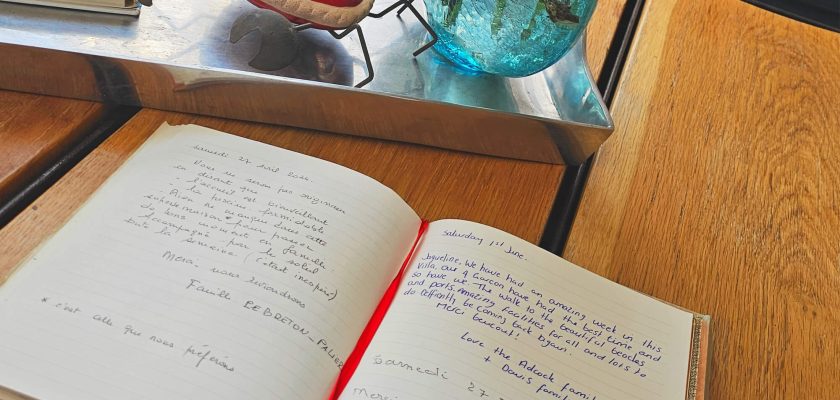 samedi 27 avril 2024.
Nous ne serons pas originaux
en disant que
- l'accueil est bienveillant
- la piscine formidable
- Rien ne manque dans cette
superbe maison * pour passer
de bons moments en famille
Accompagné par le soleil
toute la semaine (c'était inespéré)
Merci, nous reviendrons
Famille LEBRETON-
* c'est celle que nous préférons
Saturday 1st June.
Jaqueline, We have had an amazing week in this
Villa, our 4 Garcon have had the best time and
so have we. The walk to the beautiful beaches
and ports. Amazing facilities for all and lots to
do. Deffantly be coming back again.
Merci beacout!
Love the Adcock family
+ Davis family
Samedi 27
Merci